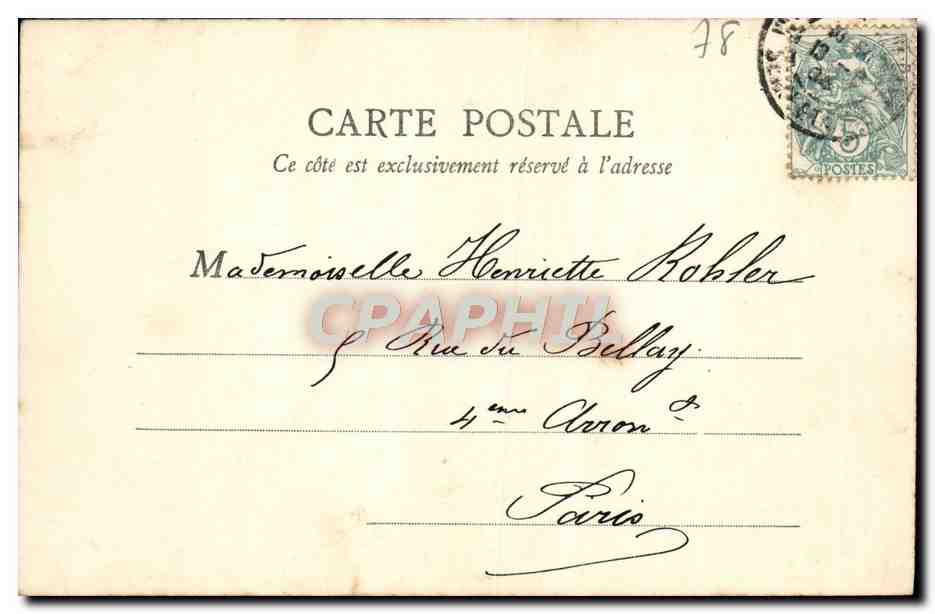 78
5
POSTES
CARTE POSTALE
Ce côté est exclusivement réservé à l'adresse
Mademoiselle Henriette Kohler
CPAPHIL
5 Rue du Bellay.
4eme Arront
Paris